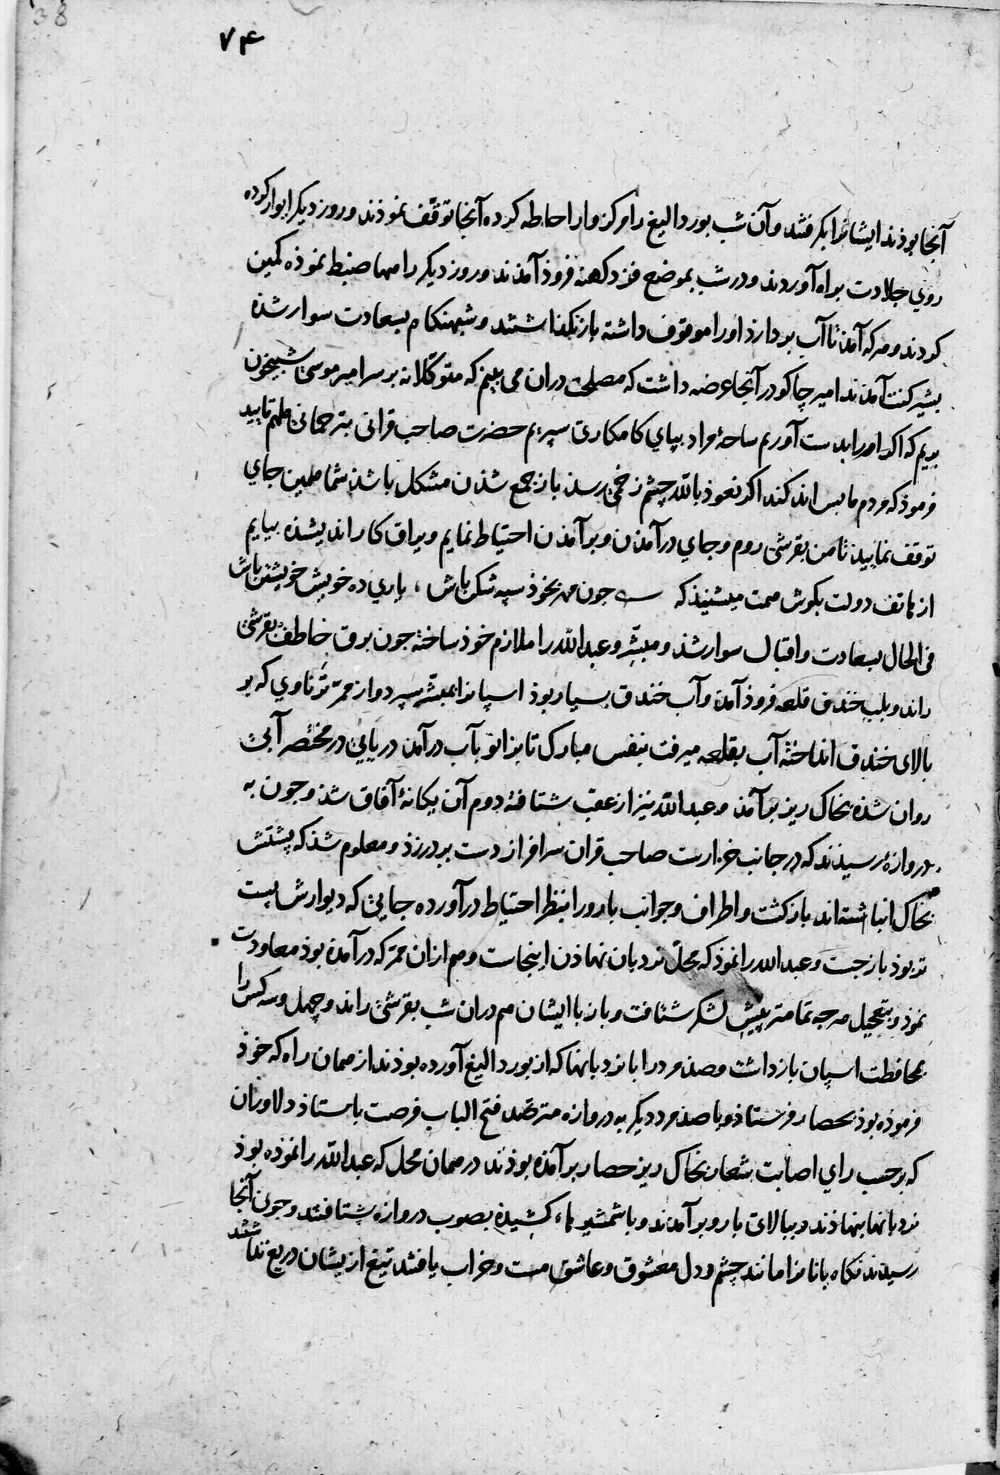 38
۷۴
آنجا بوذند ایشانرا بکرفتند و آن شب بوردالیغ را مرکزوار احاطه کرده آنجا توقف نموذند و روز دیکر ایوار کرده
روی جلادت براه آوردند و در شب بموضع فزدکهنه فروذ آمذند و روز دیکر راهها ضبط نموذه کمین
کردند و هر که آمذ تا آب بردارذ اورا موقوف داشته بازنکذاشتند و شبهنکام بسعادت سوار شذه
بشیرکنت آمذند امیر چاکو در آنجا عرضه داشت که مصلحت دران می بینم که متوکلانه بر سر امیر موسی شبیخون
بریم که اکر اورا بدست آوریم ساحهٔ مراد بپای کامکاری سپریم حضرت صاحب قرانی بترجمانی ملهم تایید
فرموذ که مردم ما بس اندکند اکر نعوذ بالله چشم زخمی رسذ باز جمع شذن مشکل باشذ شما همین جای
توقف نمایید تا من بقرشی روم و جای درآمذن و برآمذن احتیاط نمایم و یراق کار اندیشذه بیایم
از هاتف دولت بکوش همت میشنیذ که جون مهر بخوذ سپه شکن باش، یاری ده خویش خویشتن باش
فی الحال بسعادت و اقبال سوار شذ و مبشر و عبدالله را ملازم خوذ ساخته جون برق خاطف بقرشی
راند و بلب خندق قلعه فروذ آمذ و آب خندق بسیار بوذ اسپانرا بمبشر سپرد و از ممر ترناوی که بر
بالای خندق انداخته آب بقلعه میرفت بنفس مبارک تا بزانو بآب درآمذ دریایی در مختصر آبی
روان شذه بخاک ریز برآمذ و عبدالله نیز از عقب شتافته دوم آن یکانهٔ آفاق شذ و جون به
دروازهٔ رسیذند که در جانب خزارست صاحب قران سرافراز دست بر در زذ و معلوم شذ که پشتش
بخاک انباشته اند بازکشت و اطراف و جوانب بارو را بنظر احتیاط درآورده جایی که دیوارش پست
تر بوذ بازجست و عبدالله را نموذ که محل نردبان نهاذن اینجاست و هم ازان ممر که درآمذه بوذ معاودت
نموذ و بتعجیل هرچه تمامتر پیش لشکر شتافت و باز با ایشان هم دران شب بقرشی راند و چهل و سه کس را
بمحافظت اسپان بازداشت و صذ مرد را با نردبانها که از بوردالیغ آورده بوذند از همان راه که خوذ
فرموذه بوذ بحصار فرستاذ و با صذ مرد دیکر به دروازه مترصد فتح الباب فرصت باستاذ دلاوران
که برحسب رای اصابت شعار بخاک ریز حصار برآمذه بوذند در همان محل که عبدالله را نموذه بوذ
نردبانها بنهاذند و ببالای بارو برآمذند و با شمشیرهاء کشیذه بصوب دروازه شتافتند و جون آنجا
رسیذند نکاه بانانرا مانند چشم و دل معشوق و عاشق مست و خراب یافتند تیغ ازیشان دریغ نداشتند